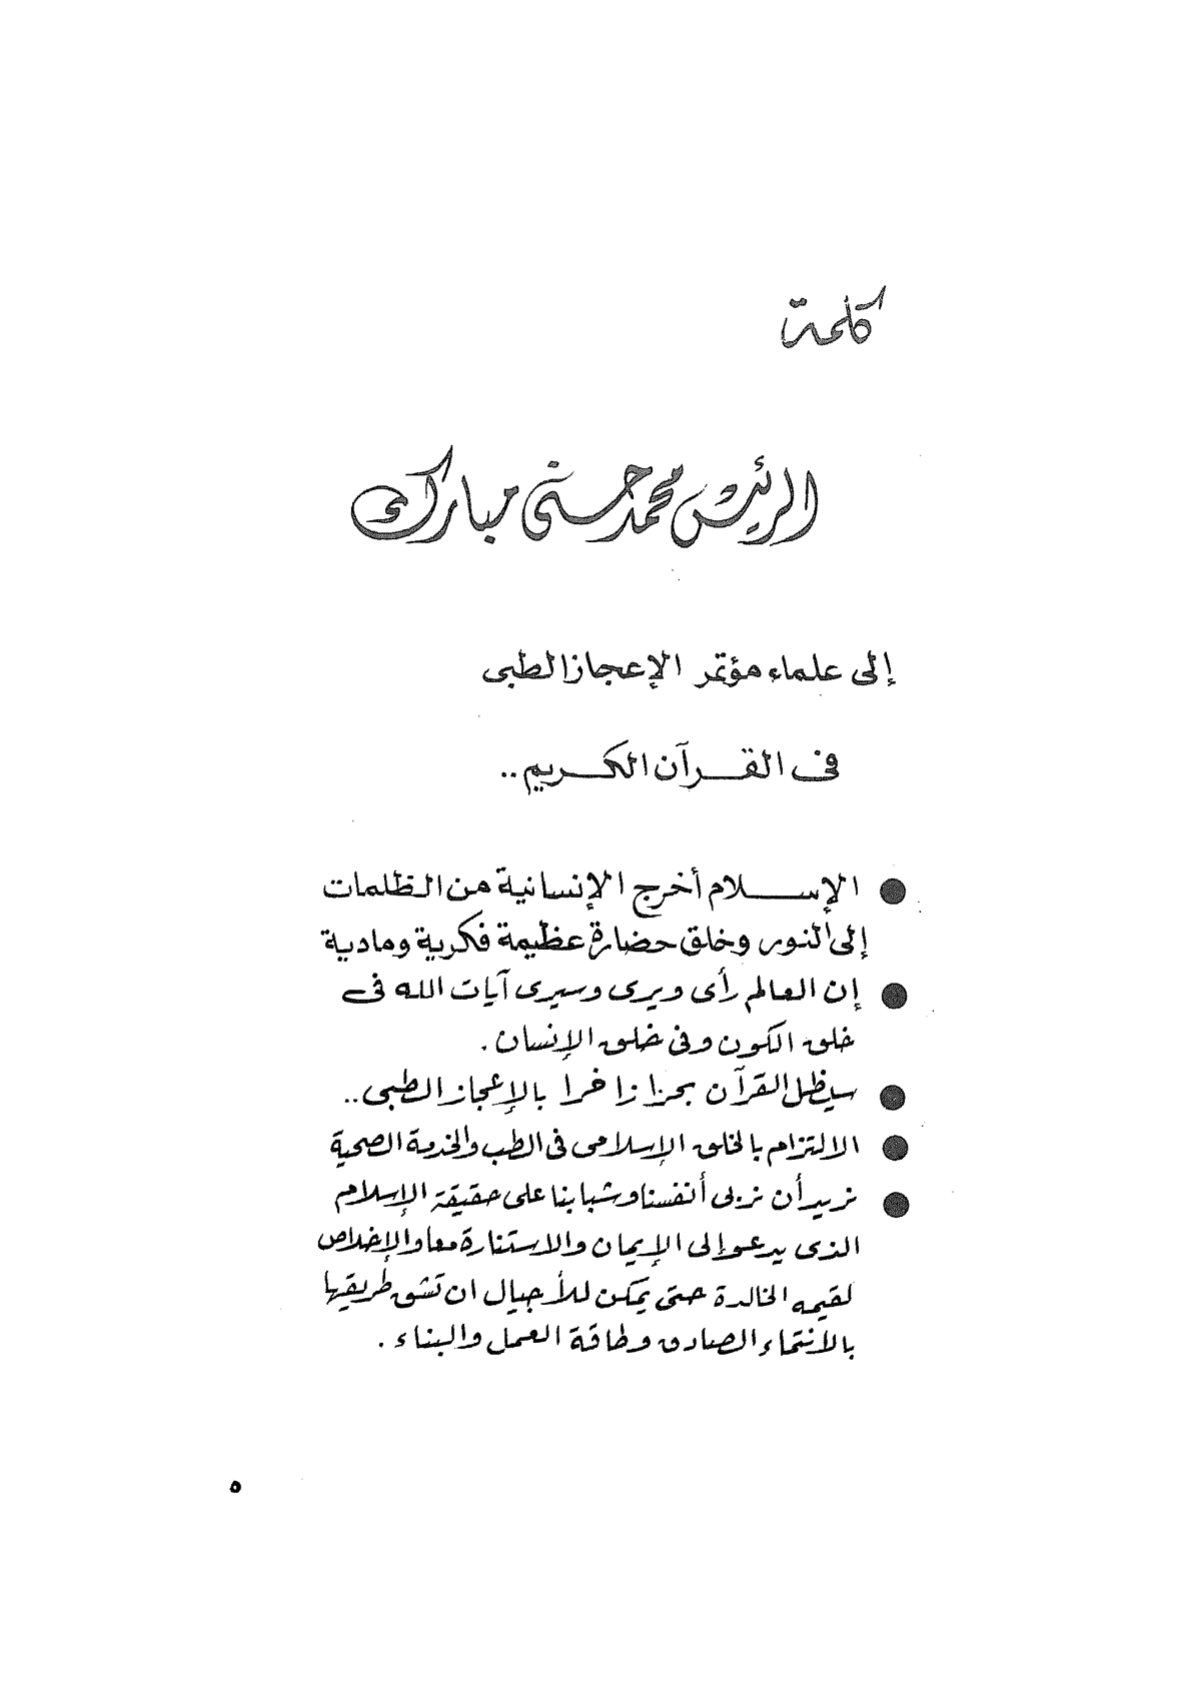 كلمة
الرئيس محمد حسنى مبارك
إلى علماء مؤتمر الإعجاز الطبى
فى القرآن الكريم ..
● الإسلام أخرج الإنسانية من الظلمات
إلى النور وخلق حضارة عظيمة فكرية ومادية
● إن العالم رأى ويرى وسيرى آيات الله فى
خلق الكون وفى خلق الإنسان .
● سيظل القرآن بحرا زاخرا بالإعجاز الطبى ..
● الالتزام بالخلق الإسلامى فى الطب والخدمة الصحية
● نريد أن نربى أنفسنا وشبابنا على حقيقة الإسلام
الذى يدعو إلى الإيمان والاستنارة معا والإخلاص
لقيمه الخالدة حتى يمكن للأجيال ان تشق طريقها
بالانتماء الصادق وطاقة العمل والبناء .
٥